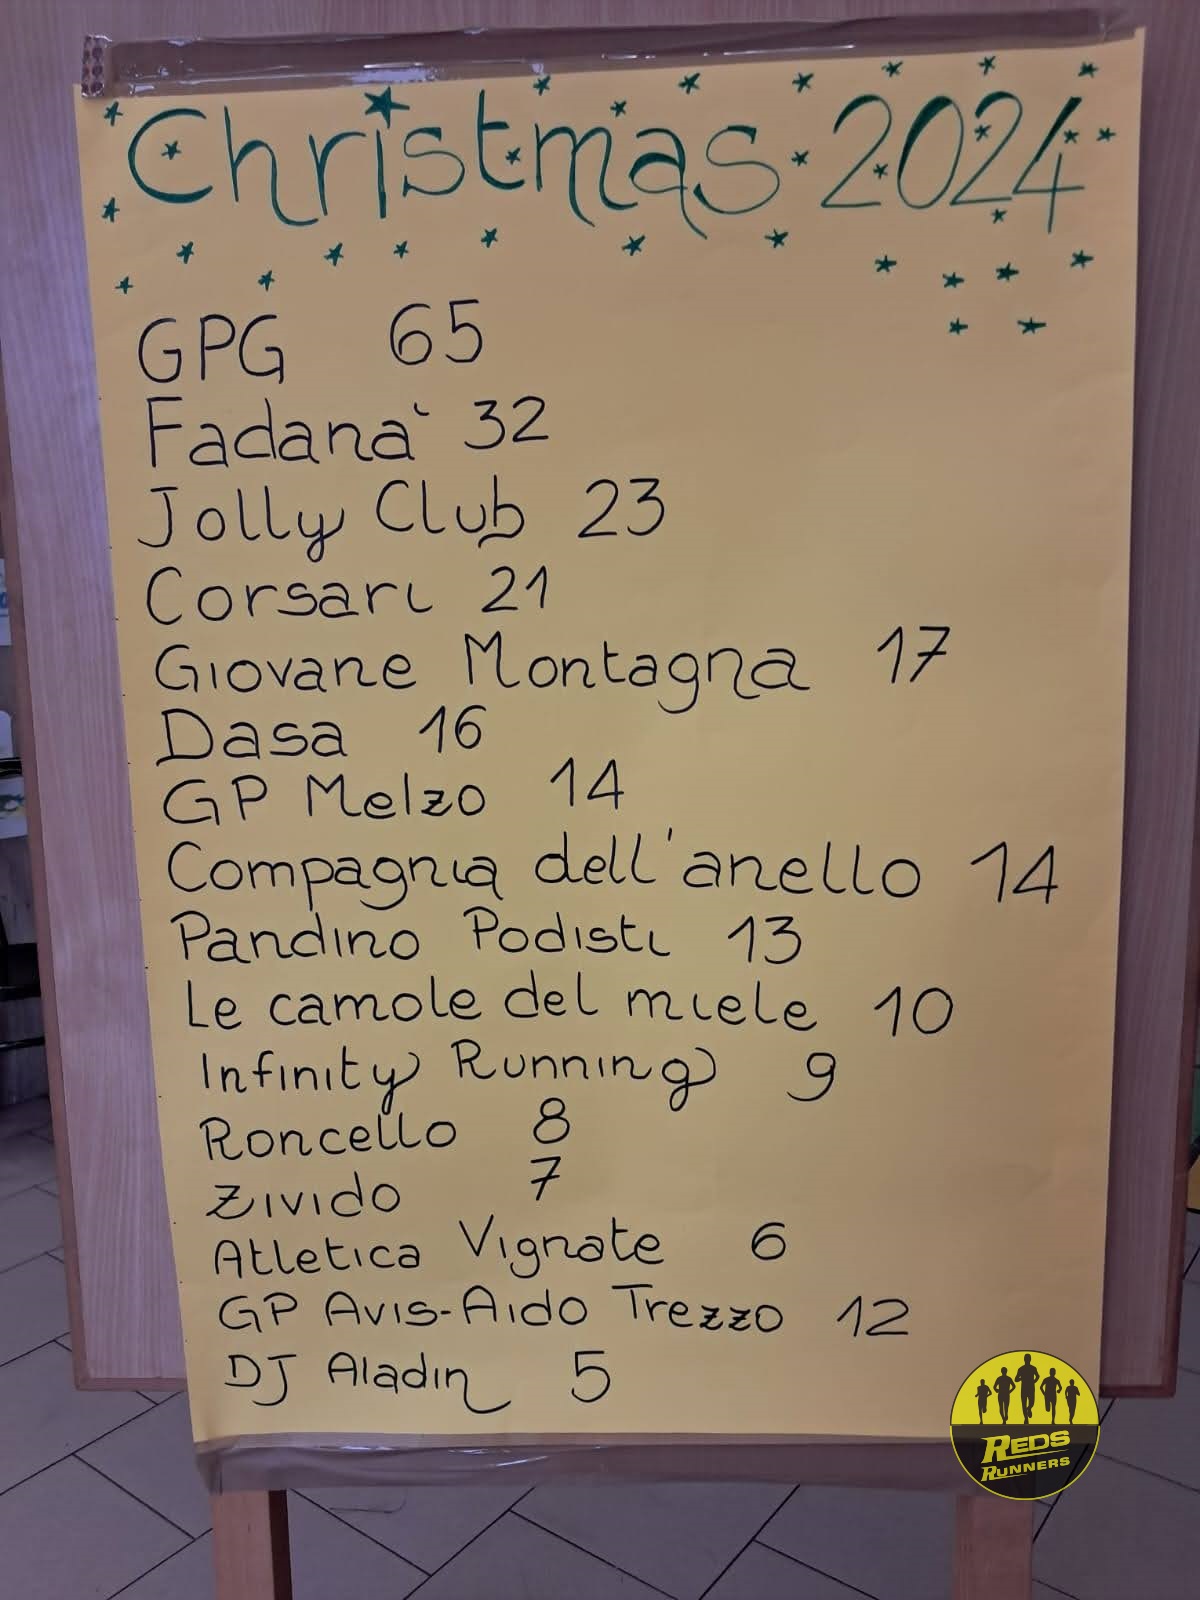 Christmas 2024
GPG 65
Fadana' 32
Jolly Club 23
Corsari 21
Giovane Montagna 17
Dasa 16
GP Melzo 14
Compagnia dell'anello 14
Pandino Podisti 13
Le camole del miele 10
Infinity Running 9
Roncello 8
Zivido 7
Atletica Vignate 6
GP Avis-Aido Trezzo 12
DJ Aladin 5
REDS
RUNNERS